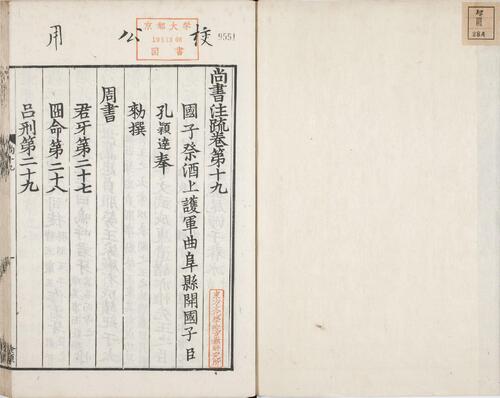 校公用
京都大學
圖書
9551
284
尚書注疏卷第十九
國子祭酒上護軍曲阜縣開國子臣
孔穎達奉
勑撰
周書
君牙第二十七
冏命第二十八
呂刑第二十九